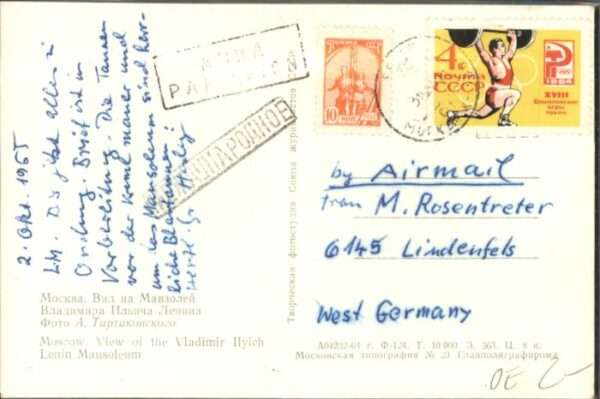 2. Okt. 1965
LM. Da ist alles in
Ordnung. Brief ist in
Vorbereitung. Die Tannen
vor der Kreml mauer und
um das Mausoleum sind herr-
liche Blautannen
Herzl. Gr.
Москва. Вид на Мавзолей
Владимира Ильича Ленина
Фото А. Тартаковского
Moscow. View of the Vladimir Ilyich
Lenin Mausoleum
Творческая фотостудия Союза журналистов
10
4
ПОЧТА
СССР
1964
XVIII
Олимпийские
игры
Москва
by Airmail
Frau M. Rosentreter
6145 Lindenfels
West Germany
А04232-64 г. Ф-124. Т. 10 000. З. 563. Ц. 8 к.
Московская типография № 23 Главполиграфпрома